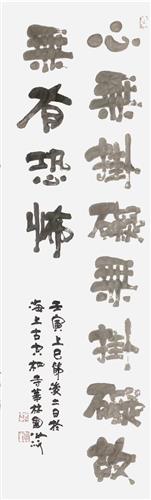 心無掛礙無掛礙故
無有恐怖
壬寅上巳節後二日
海上古